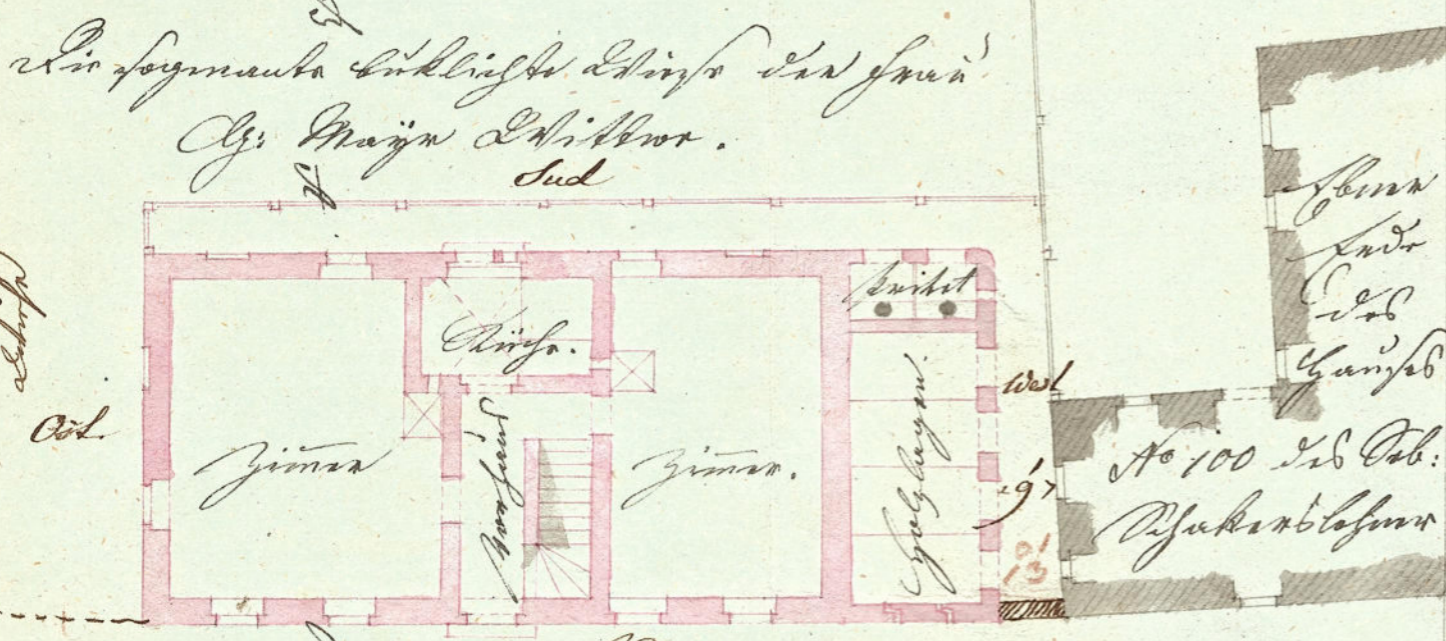 Die sogenante buklichte Wiese der Frau
G: Mayr Wittwe.
Sud
Ost.
Zimmer
Küche.
Vorhaus
Zimmer.
Privet
Holzlagen
West
9'
Ebner
Erde
des
Hauses
No 100 des Seb:
Schakerslohner